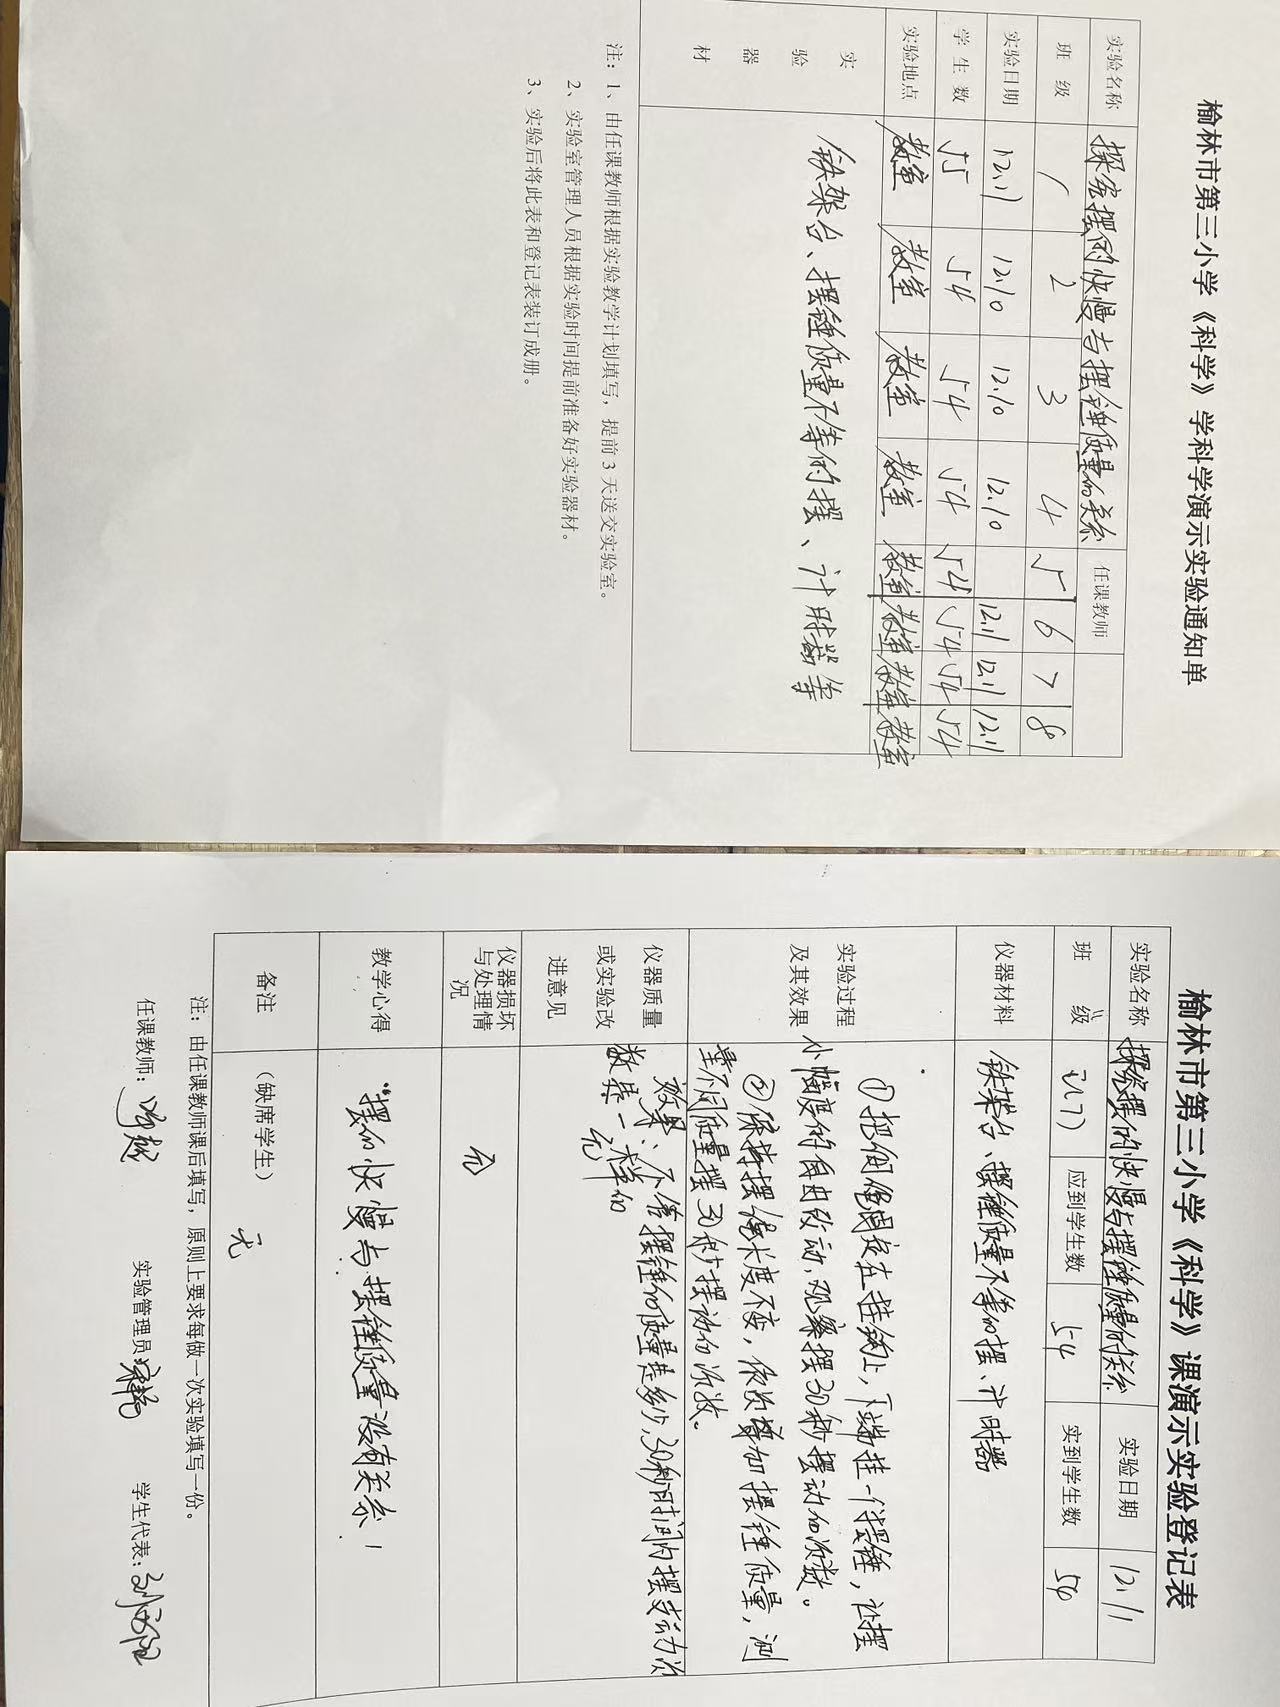 榆林市第三小学《科学》学科学演示实验通知单
实验名称 探究摆的快慢与摆锤质量的关系 任课教师
班 级 1 2 3 4 5 6 7 8
实验日期 12.11 12.10 12.10 12.10 12.11 12.11 12.11
学生数 55 54 54 54 54 54 54 54
实验地点 教室 教室 教室 教室 教室 教室 教室 教室
实验器材 铁架台、摆锤质量不等的摆、计时器等
注：1、由任课教师根据实验教学计划填写，提前 3 天送交实验室。
2、实验室管理人员根据实验时间提前准备好实验器材。
3、实验后将此表和登记表装订成册。
榆林市第三小学《科学》课演示实验登记表
实验名称 探究摆的快慢与摆锤质量的关系 实验日期 12.11
班 级 应到学生数 54 实到学生数 54
仪器材料 铁架台、摆锤质量不等的摆、计时器
实验过程及其效果
①把细绳固定在挂钩上，下端挂一个摆锤，让摆
小幅度的自由改动，观察摆30秒摆动的次数。
②保持摆绳长度不变，依次增加摆锤质量，测
量不同质量摆30秒摆动的次数。
效果：不管摆锤的质量是多少，30秒时间内摆动次
数是一样的
仪器质量或实验改进意见 无
仪器损坏与处理情况 无
教学心得 "摆的快慢与摆锤质量没有关系！
备注 （缺席学生） 无
注：由任课教师课后填写，原则上要求每做一次实验填写一份。
任课教师： 实验管理员： 学生代表：